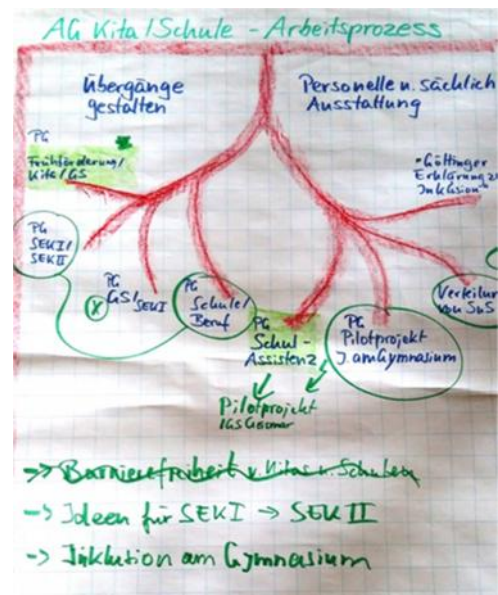 AG Kita/Schule - Arbeitsprozess
Übergänge
gestalten
Personelle u. sächlich
Ausstattung
PG
Frühförderung/
Kita/GS
PG
SEKI/
SEKII
PG
GS/SEKI
PG
Schule/
Beruf
PG
Schul-
Assistenz
PG
Pilotprojekt
J. am Gymnasium
Verteilun
von SuS
-Göttinger
Erklärung z
Inklusion
Pilotprojekt
IGS Geismar
-> Barrierefreiheit v. Kitas u. Schulen
-> Ideen für SEKI -> SEKII
-> Inklusion am Gymnasium